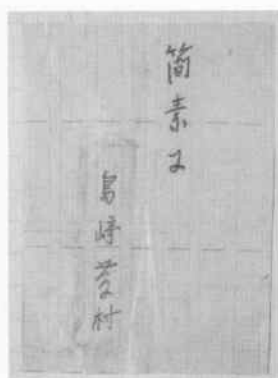 簡素に
島崎藤村